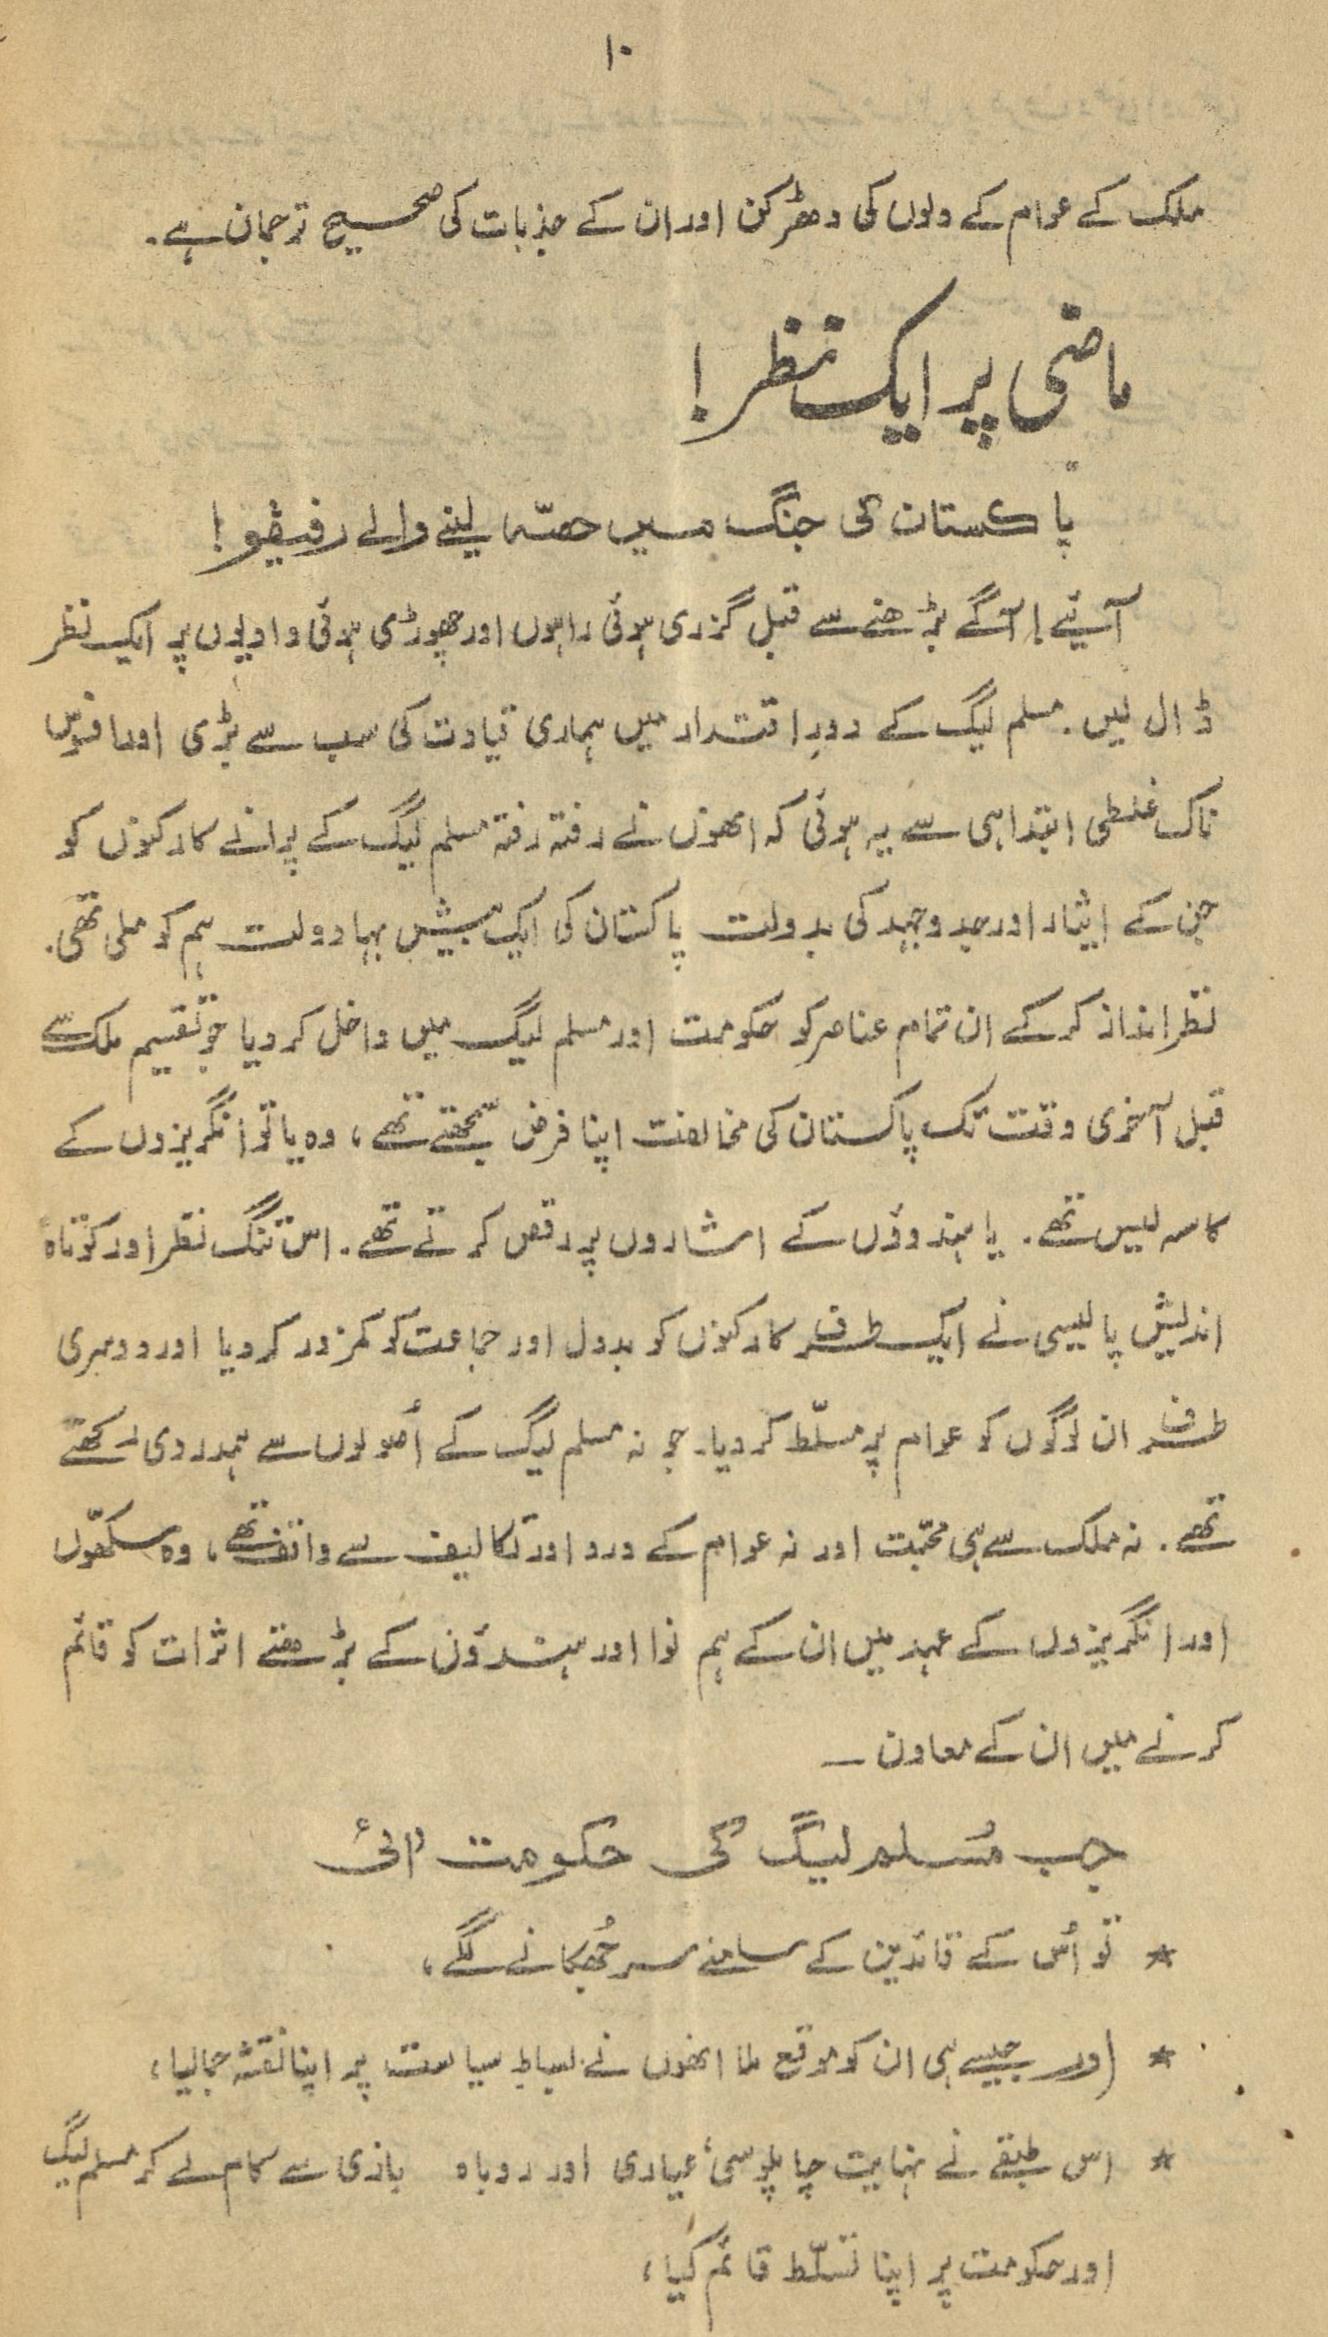 ۱۰
ملک کے عوام کے دلوں کی دھڑکن اور ان کے جذبات کی صحیح ترجمان ہے۔
ماضی پر ایک نظر!
پاکستان کی جنگ میں حصّہ لینے والے رفیقو!
آئیے! آگے بڑھنے سے قبل گزری ہوئی راہوں اور چھوڑی ہوئی وادیوں پر ایک نظر
ڈال لیں۔ مسلم لیگ کے دورِ اقتدار میں ہماری قیادت کی سب سے بڑی اور افسوس
ناک غلطی ابتدا ہی سے یہ ہوئی کہ انھوں نے رفتہ رفتہ مسلم لیگ کے پرانے کارکنوں کو
جن کے ایثار اور جد وجہد کی بدولت پاکستان کی ایک بیش بہا دولت ہم کو ملی تھی۔
نظر انداز کر کے ان تمام عناصر کو حکومت اور مسلم لیگ میں داخل کر دیا جو تقسیم ملک سے
قبل آخری وقت تک پاکستان کی مخالفت اپنا فرض سمجھتے تھے، وہ یا تو انگریزوں کے
کاسہ لیس تھے۔ یا ہندوؤں کے اشاروں پر رقص کرتے تھے۔ اس تنگ نظر اور کوتاہ
اندیش پالیسی نے ایک طرف کارکنوں کو بددل اور جماعت کو کمزور کر دیا اور دوسری
طرف ان لوگوں کو عوام پر مسلّط کر دیا۔ جو نہ مسلم لیگ کے اُصولوں سے ہمدردی رکھتے
تھے۔ نہ ملک سے ہی محبّت اور نہ عوام کے درد اور تکالیف سے واقف تھے، وہ سکھّوں
اور انگریزوں کے عہد میں ان کے ہم نوا اور ہندوؤں کے بڑھتے اثرات کو قائم
کرنے میں ان کے معاون ــ
جب مُسلم لیگ کی حکومت آئی
★ تو اُس کے قائدین کے سامنے سر جُھکانے لگے،
★ اور جیسے ہی ان کو موقع ملا انھوں نے بساطِ سیاست پر اپنا نقشہ جما لیا،
★ اس طبقے نے نہایت چاپلوسی، عیاری اور روباہ بازی سے کام لے کر مسلم لیگ
اور حکومت پر اپنا تسلّط قائم کیا،